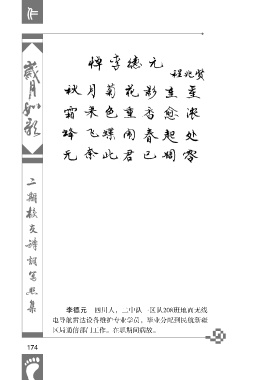 岁月如歌
二期校友诗词写照集
悼李德元
程兆贤
秋月菊花影直垂
霜来色重香愈浓
蜂飞蝶闹春起处
元奈此君已凋零
李德元 四川人，二中队一区队208班地面无线
电导航雷达设备维护专业学员，毕业分配到民航新疆
区局通信部门工作。在职期间病故。
174